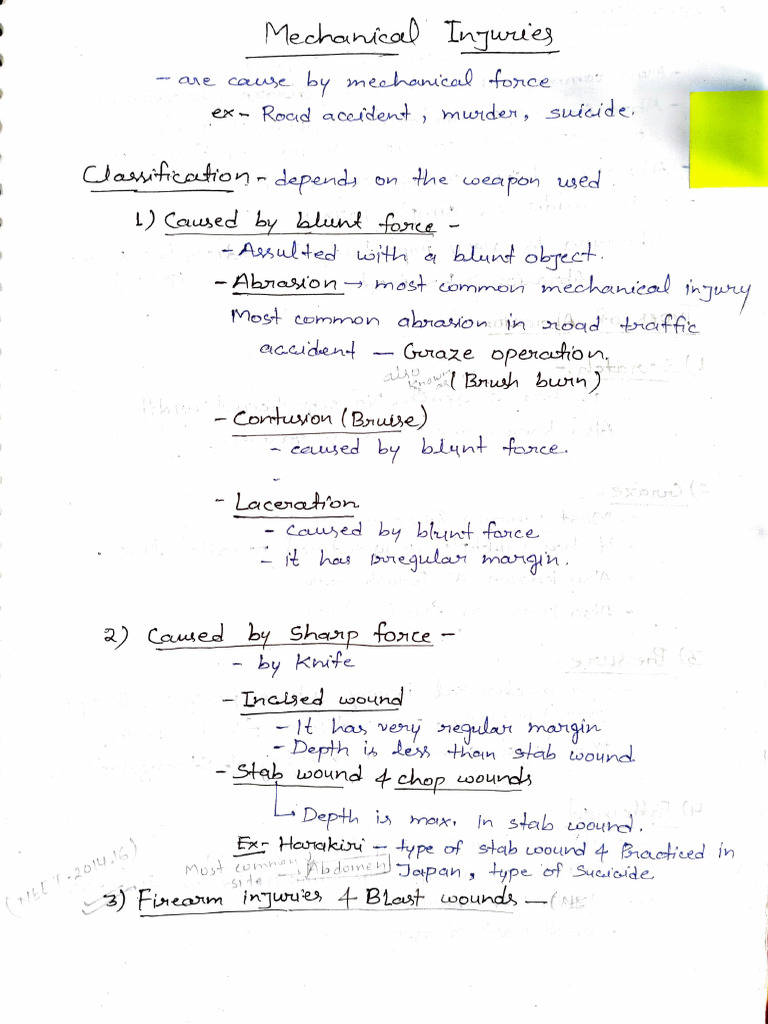 Mechanical Injuries
- are cause by mechanical force
ex - Road accident, murder, suicide.
Classification - depends on the weapon used
1) Caused by blunt force -
- Assulted with a blunt object.
- Abrasion → most common mechanical injury
Most common abrasion in road traffic
accident - Graze operation.
also known as (Brush burn)
- Contusion (Bruise)
- caused by blunt force.
-
- Laceration
- Caused by blunt force
- it has irregular margin.
2) Caused by Sharp force -
- by Knife
- Incised wound
- It has very regular margin
- Depth is less than stab wound
- Stab wound & chop wounds
Depth is max. in stab wound.
Ex - Harakiri - type of stab wound & Practiced in
Most common site - Abdomen Japan, type of Sucicide
(NEET-2014,16)
3) Firearm injuries & Blast wounds -